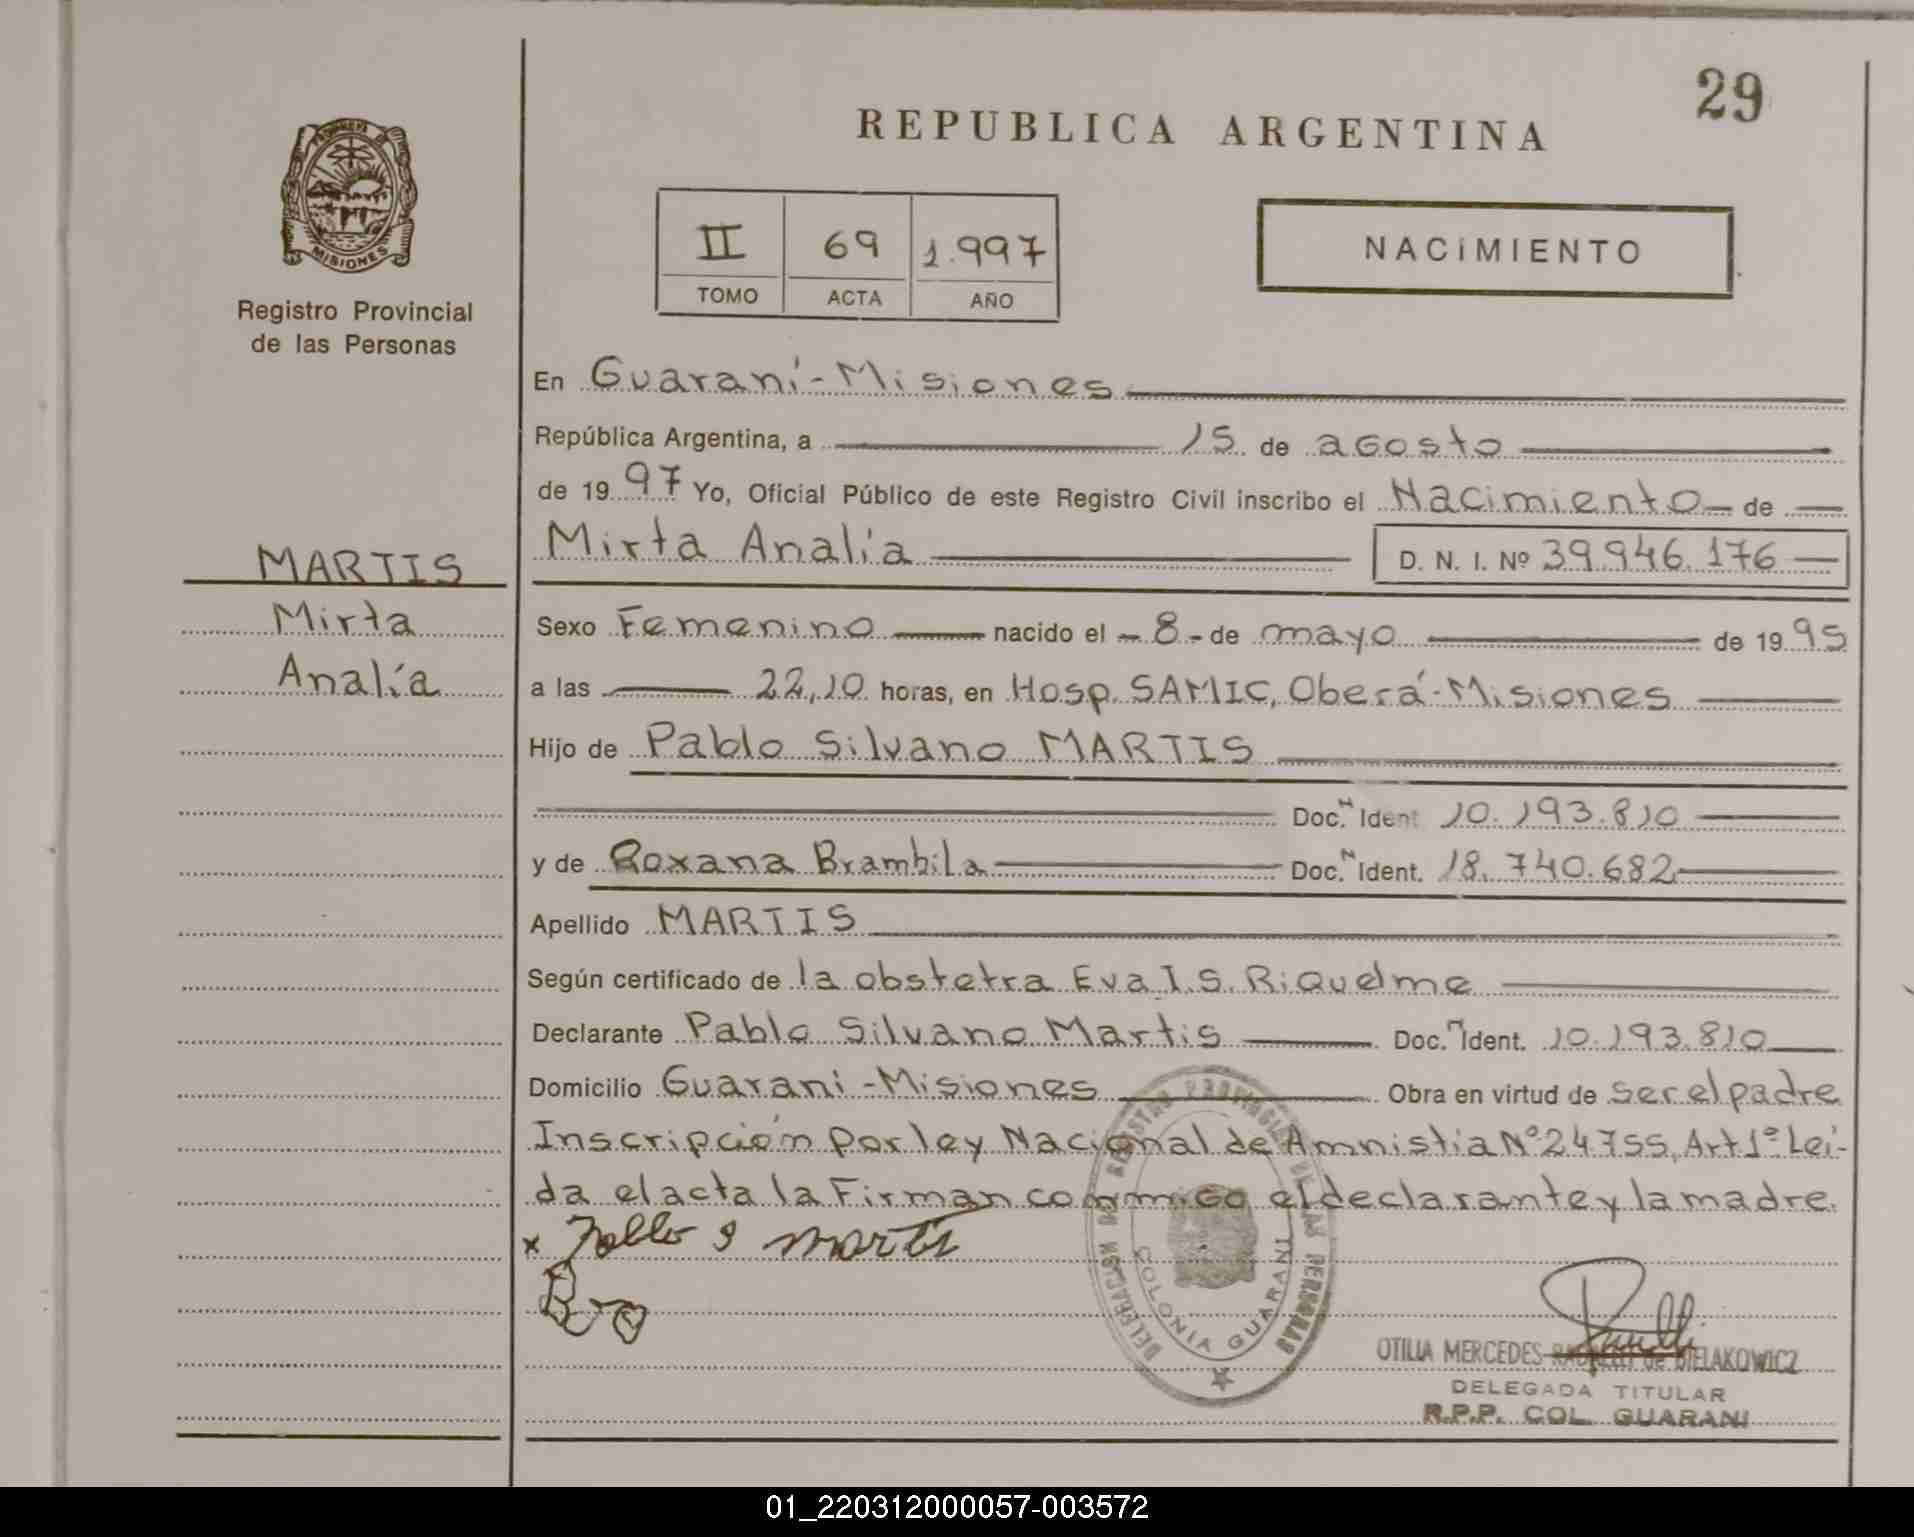 29
REPUBLICA ARGENTINA
MISIONES
Registro Provincial
de las Personas
II 69 1.997
TOMO ACTA AÑO
NACIMIENTO
En Guaraní-Misiones
República Argentina, a 15 de agosto
de 19 97 Yo, Oficial Público de este Registro Civil inscribo el Nacimiento de
MARTIS
Mirta
Analía
Mirta Analía D. N. I. Nº 39.946.176
Sexo Femenino nacido el - 8 - de mayo de 19 95
a las 22,10 horas, en Hosp. SAMIC, Oberá-Misiones
Hijo de Pablo Silvano MARTIS
Doc. N Ident 10.193.810
y de Roxana Brambila Doc. N Ident. 18.740.682
Apellido MARTIS
Según certificado de la obstetra Eva I.S. Riquelme
Declarante Pablo Silvano Martis Doc. N Ident. 10.193.810
Domicilio Guaraní-Misiones Obra en virtud de ser el padre
Inscripción por ley Nacional de Amnistia Nº 24755, Art 1º Leí-
da el acta la Firman conmigo el declarante y la madre.
x Pablo S Martis
DELEGACION DEL REGISTRO PROVINCIAL DE LAS PERSONAS
COLONIA GUARANI
OTILIA MERCEDES de BIELAKOWICZ
DELEGADA TITULAR
R.P.P. COL. GUARANI
01_220312000057-003572